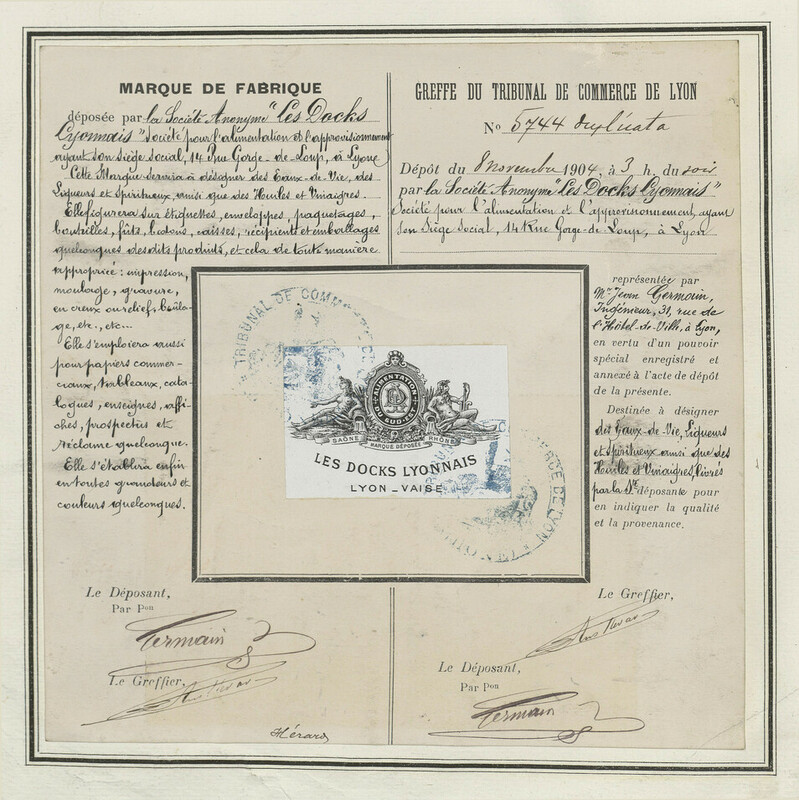 MARQUE DE FABRIQUE
déposée par la Société Anonyme "Les Docks
Lyonnais" Société pour l'alimentation et l'approvisionnement
ayant son Siège social, 14 Rue Gorge-de-Loup, à Lyon.
Cette Marque servira à désigner des Eaux-de-Vie, des
Liqueurs et Spiritueux, ainsi que des Huiles et Vinaigres.
Elle figurera sur étiquettes, enveloppes, paquetages,
bouteilles, fûts, bidons, caisses, récipients et emballages
quelconques desdits produits, et cela de toute manière
appropriée : impression,
moulage, gravure,
en creux ou relief, brûla-
ge, etc., etc...
Elle s'emploiera aussi
pour papiers commer-
ciaux, tableaux, cata-
logues, enseignes, affi-
ches, prospectus et
réclame quelconque.
Elle s'établira enfin
en toutes grandeurs et
couleurs quelconques.
Le Déposant,
Par Pon
Germain
Le Greffier,
Hérard
GREFFE DU TRIBUNAL DE COMMERCE DE LYON
No 5744 duplicata
Dépôt du 8 novembre 1904, à 3 h. du soir
par la Société Anonyme "Les Docks Lyonnais"
Société pour l'alimentation et l'approvisionnement, ayant
son Siège Social, 14 Rue Gorge-de-Loup, à Lyon
représentée par
Mr Jean Germain,
Ingénieur, 31, rue de
l'Hôtel-de-Ville, à Lyon,
en vertu d'un pouvoir
spécial enregistré et
annexé à l'acte de dépôt
de la présente.
Destinée à désigner
des Eaux-de-Vie, Liqueurs
et Spiritueux ainsi que des
Huiles et Vinaigres, livrés
par la Sté déposante pour
en indiquer la qualité
et la provenance.
Le Greffier,
Le Déposant,
Par Pon
Germain
TRIBUNAL DE COMMERCE
ALIMENTATION
DU SUD-EST
SAÔNE
RHÔNE
MARQUE DÉPOSÉE
LES DOCKS LYONNAIS
LYON _ VAISE
RCE DE LYON